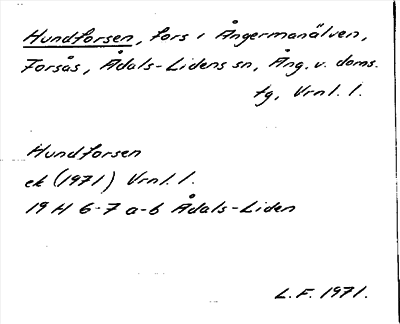 Hundforsen, fors i Ångermanälven,
Forsås, Ådals-Lidens sn, Ång. v. doms.
tg, Vrnl. l.
Hundforsen
ek (1971) Vrnl. l.
19 H 6-7 a-b Ådals-Liden
L.F. 1971.